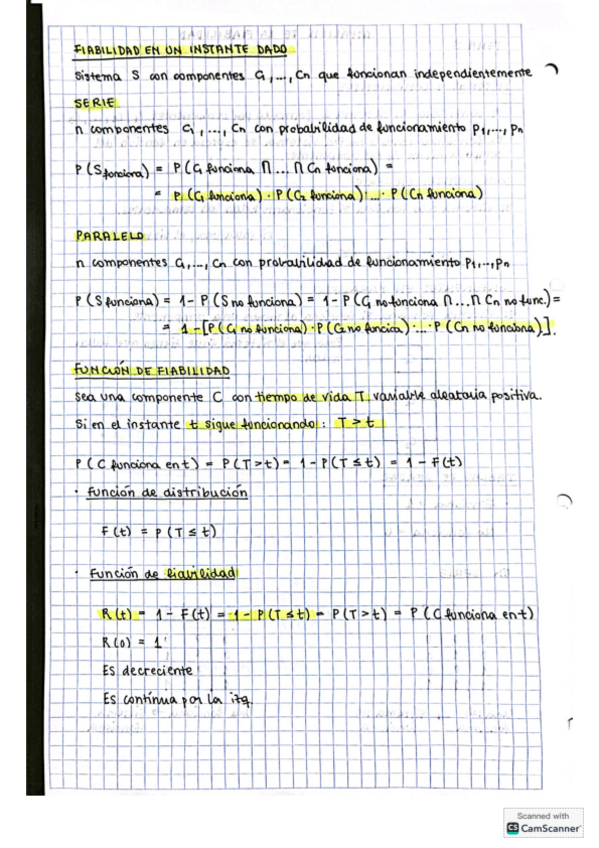 FIABILIDAD EN UN INSTANTE DADO
Sistema S con componentes C1,..., Cn que funcionan independientemente
SERIE
n componentes C1,..., Cn con probabilidad de funcionamiento p1,..., pn
P(Sfunciona) = P(C1 funciona ∩ ... ∩ Cn funciona) =
= P(C1 funciona) · P(C2 funciona) · ... · P(Cn funciona)
PARALELO
n componentes C1,..., Cn con probabilidad de funcionamiento p1,...,pn
P(S funciona) = 1 - P(S no funciona) = 1 - P(C1 no funciona ∩ ... ∩ Cn no func.) =
= 1 - [P(C1 no funciona) · P(C2 no funcica) · ... · P(Cn no funciona)].
FUNCIÓN DE FIABILIDAD
Sea una componente C con tiempo de vida T, variable aleatoria positiva.
Si en el instante t sigue funcionando: T > t
P(C funciona en t) = P(T>t) = 1 - P(T ≤ t) = 1 - F(t)
· Función de distribución
F(t) = P(T ≤ t)
· Función de fiabilidad
R(t) = 1 - F(t) = 1 - P(T ≤ t) = P(T > t) = P(C funciona en t)
R(0) = 1
Es decreciente
Es contínua por la izq.
Scanned with
CS CamScanner